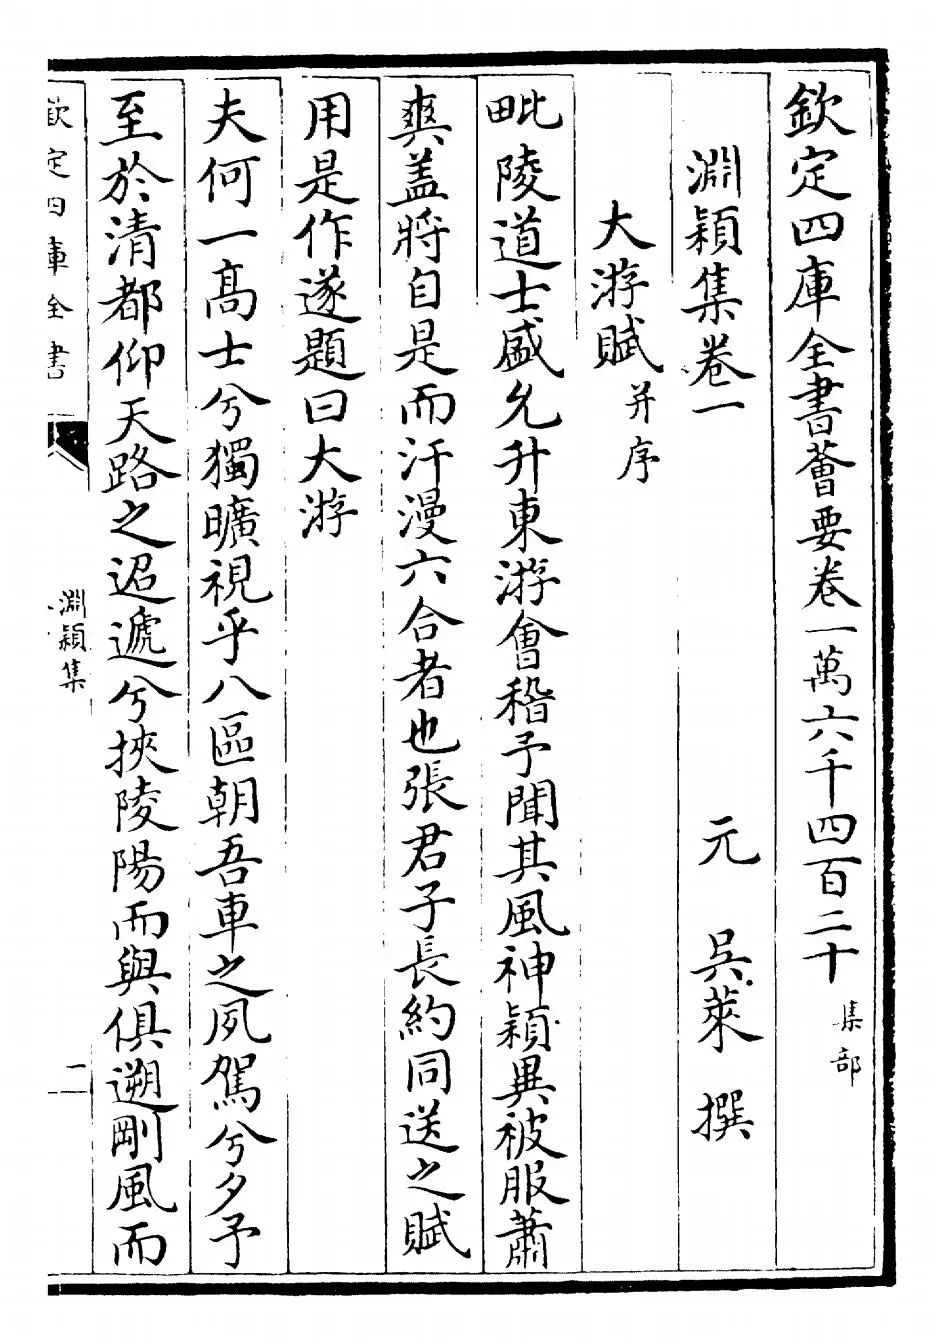 欽定四庫全書薈要卷一萬六千四百二十 集部
淵穎集卷一
元 吳萊 撰
大游賦 并序
毗陵道士盛允升東游㑹稽予聞其風神穎異被服蕭
爽盖將自是而汗漫六合者也張君子長約同送之賦
用是作遂題曰大游
夫何一髙士兮獨曠視乎八區朝吾車之夙駕兮夕予
至於清都仰天路之迢遞兮挾陵陽而與俱遡剛風而
欽定四庫全書
淵穎集
二